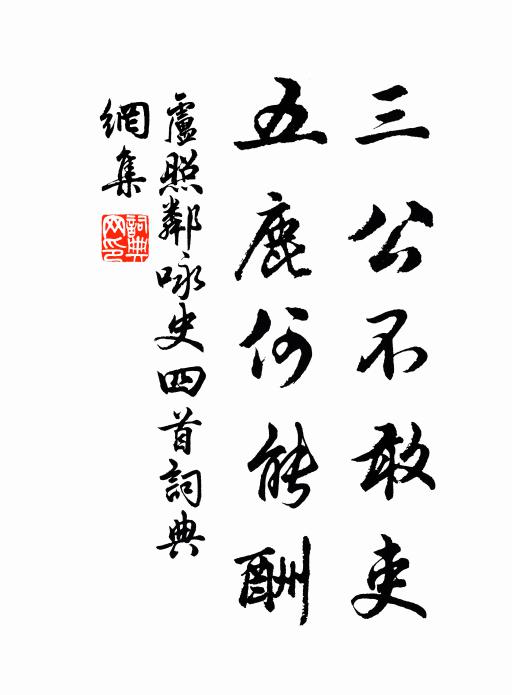 三公不敢吏
五鹿何能酬
盧照鄰咏史四首詞典
網集
詞典
网印